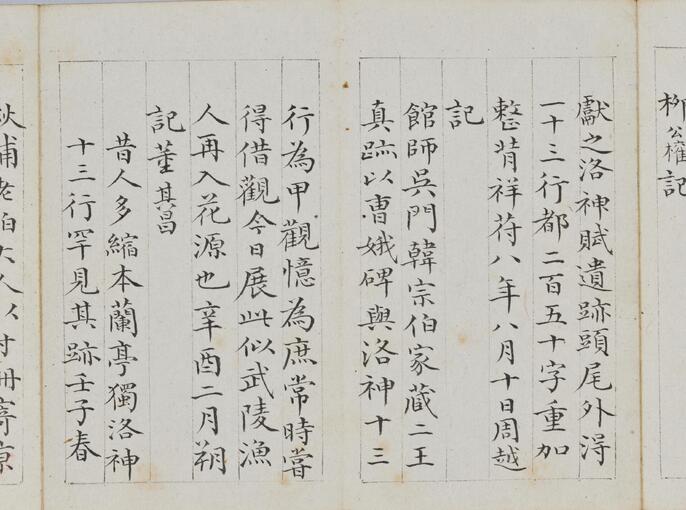 柳公權記
獻之洛神賦遺跡頭尾外得
一十三行都二百五十字重加
整背祥符八年八月十日周越
記
館師吳門韓宗伯家藏二王
真跡以曹娥碑與洛神十三
行為甲觀憶為庶常時嘗
得借觀今日展此似武陵漁
人再入花源也辛酉二月朔
記董其昌
昔人多縮本蘭亭獨洛神
十三行罕見其跡壬子春
秋浦老伯大人以對冊寄京